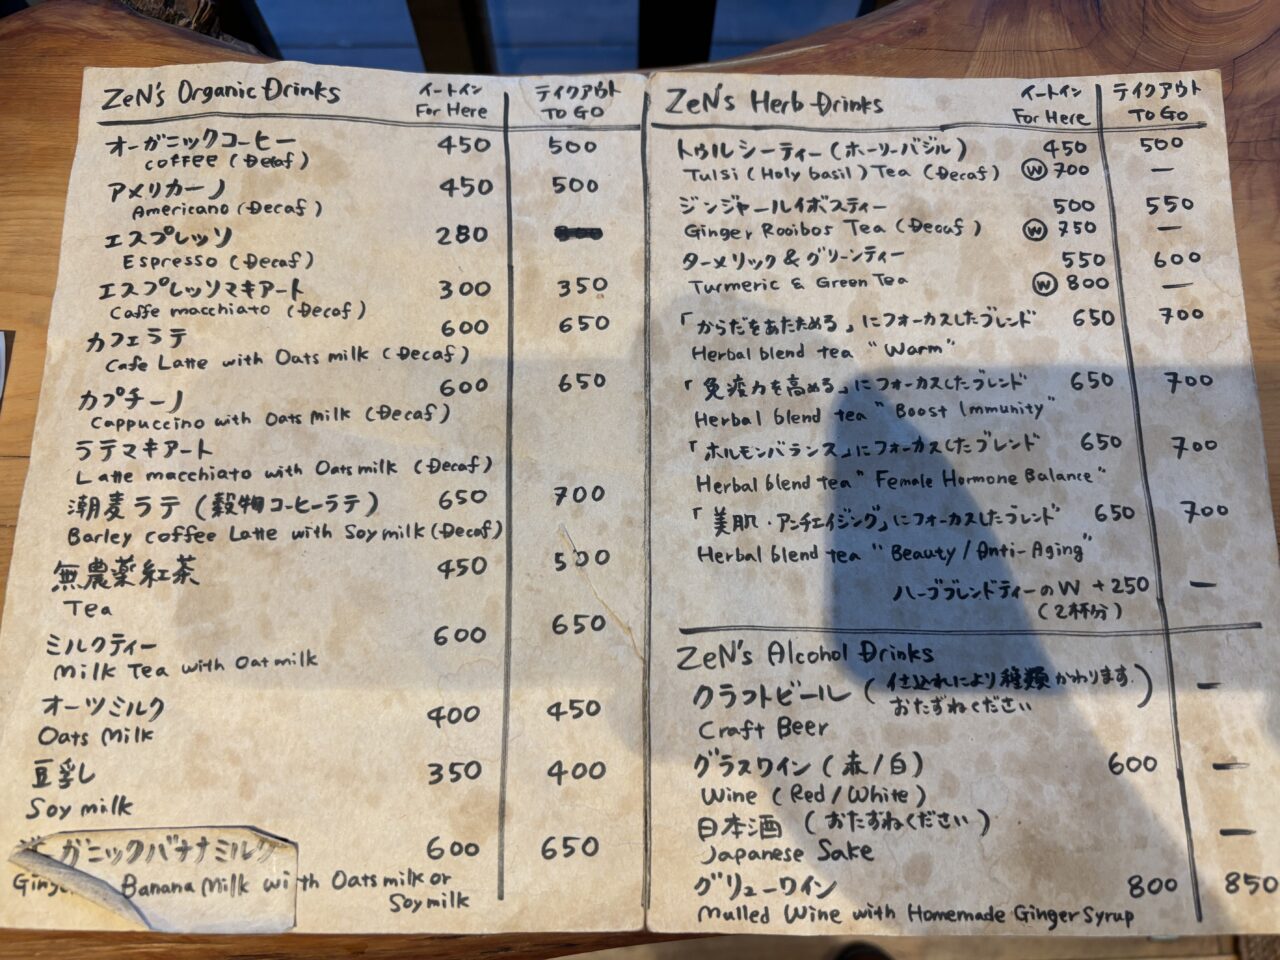 ZeN's Organic Drinks
イートイン
For Here
テイクアウト
To Go
オーガニックコーヒー 450 500
coffee (Decaf)
アメリカーノ 450 500
Americano (Decaf)
エスプレッソ 280
Espresso (Decaf)
エスプレッソマキアート 300 350
Caffe macchiato (Decaf)
カフェラテ 600 650
Cafe Latte with Oats milk (Decaf)
カプチーノ 600 650
Cappuccino with Oats milk (Decaf)
ラテマキアート
Latte macchiato with Oats milk (Decaf)
潮麦ラテ (穀物コーヒーラテ) 650 700
Barley coffee Latte with Soy milk (Decaf)
無農薬紅茶 450 500
Tea
ミルクティー 600 650
Milk Tea with Oatmilk
オーツミルク 400 450
Oats Milk
豆乳 350 400
Soy milk
ガニックバナナミルク 600 650
Banana Milk with Oats milk or
Soy milk
ZeN's Herb Drinks
イートイン
For Here
テイクアウト
To Go
トゥルシーティー (ホーリーバジル) 450 500
Tulsi (Holy basil) Tea (Decaf) Ⓦ 700 —
ジンジャールイボスティー 500 550
Ginger Rooibos Tea (Decaf) Ⓦ 750 —
ターメリック & グリーンティー 550 600
Turmeric & Green Tea Ⓦ 800 —
「からだをあたためる」にフォーカスしたブレンド 650 700
Herbal blend tea "Warm"
「免疫力を高める」にフォーカスしたブレンド 650 700
Herbal blend tea "Boost Immunity"
「ホルモンバランス」にフォーカスしたブレンド 650 700
Herbal blend tea "Female Hormone Balance"
「美肌・アンチエイジング」にフォーカスしたブレンド 650 700
Herbal blend tea "Beauty / Anti-Aging"
ハーブブレンドティーのW +250 —
(2杯分)
ZeN's Alcohol Drinks
クラフトビール (仕込れにより種類かわります. おたずねください) —
Craft Beer
グラスワイン (赤/白) 600 —
Wine (Red / White)
日本酒 (おたずねください) —
Japanese Sake
グリューワイン 800 850
Mulled Wine with Homemade Ginger Syrup